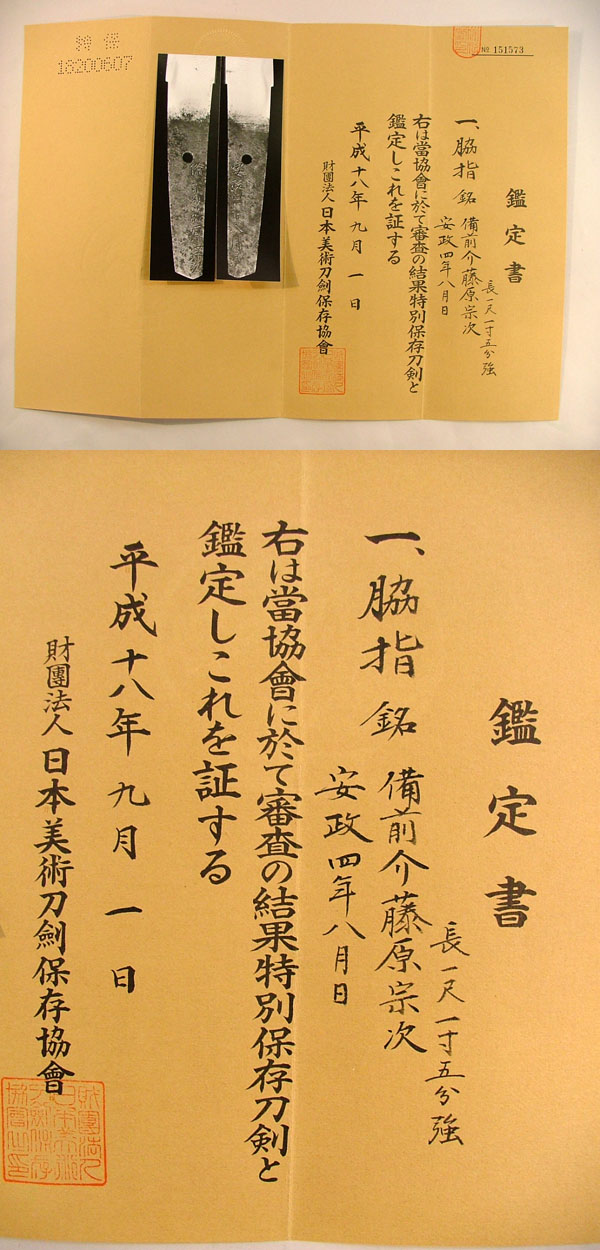 鑑定書
長一尺一寸五分強
一、脇指 銘 備前介藤原宗次
安政四年八月日
右は當協會に於て審査の結果特別保存刀剣と
鑑定しこれを証する
平成十八年九月一日
財團法人 日本美術刀劍保存協會
№ 151573
特保
18200607
鑑定書
長一尺一寸五分強
一、脇指 銘 備前介藤原宗次
安政四年八月日
右は當協會に於て審査の結果特別保存刀剣と
鑑定しこれを証する
平成十八年九月一日
財團法人 日本美術刀劍保存協會